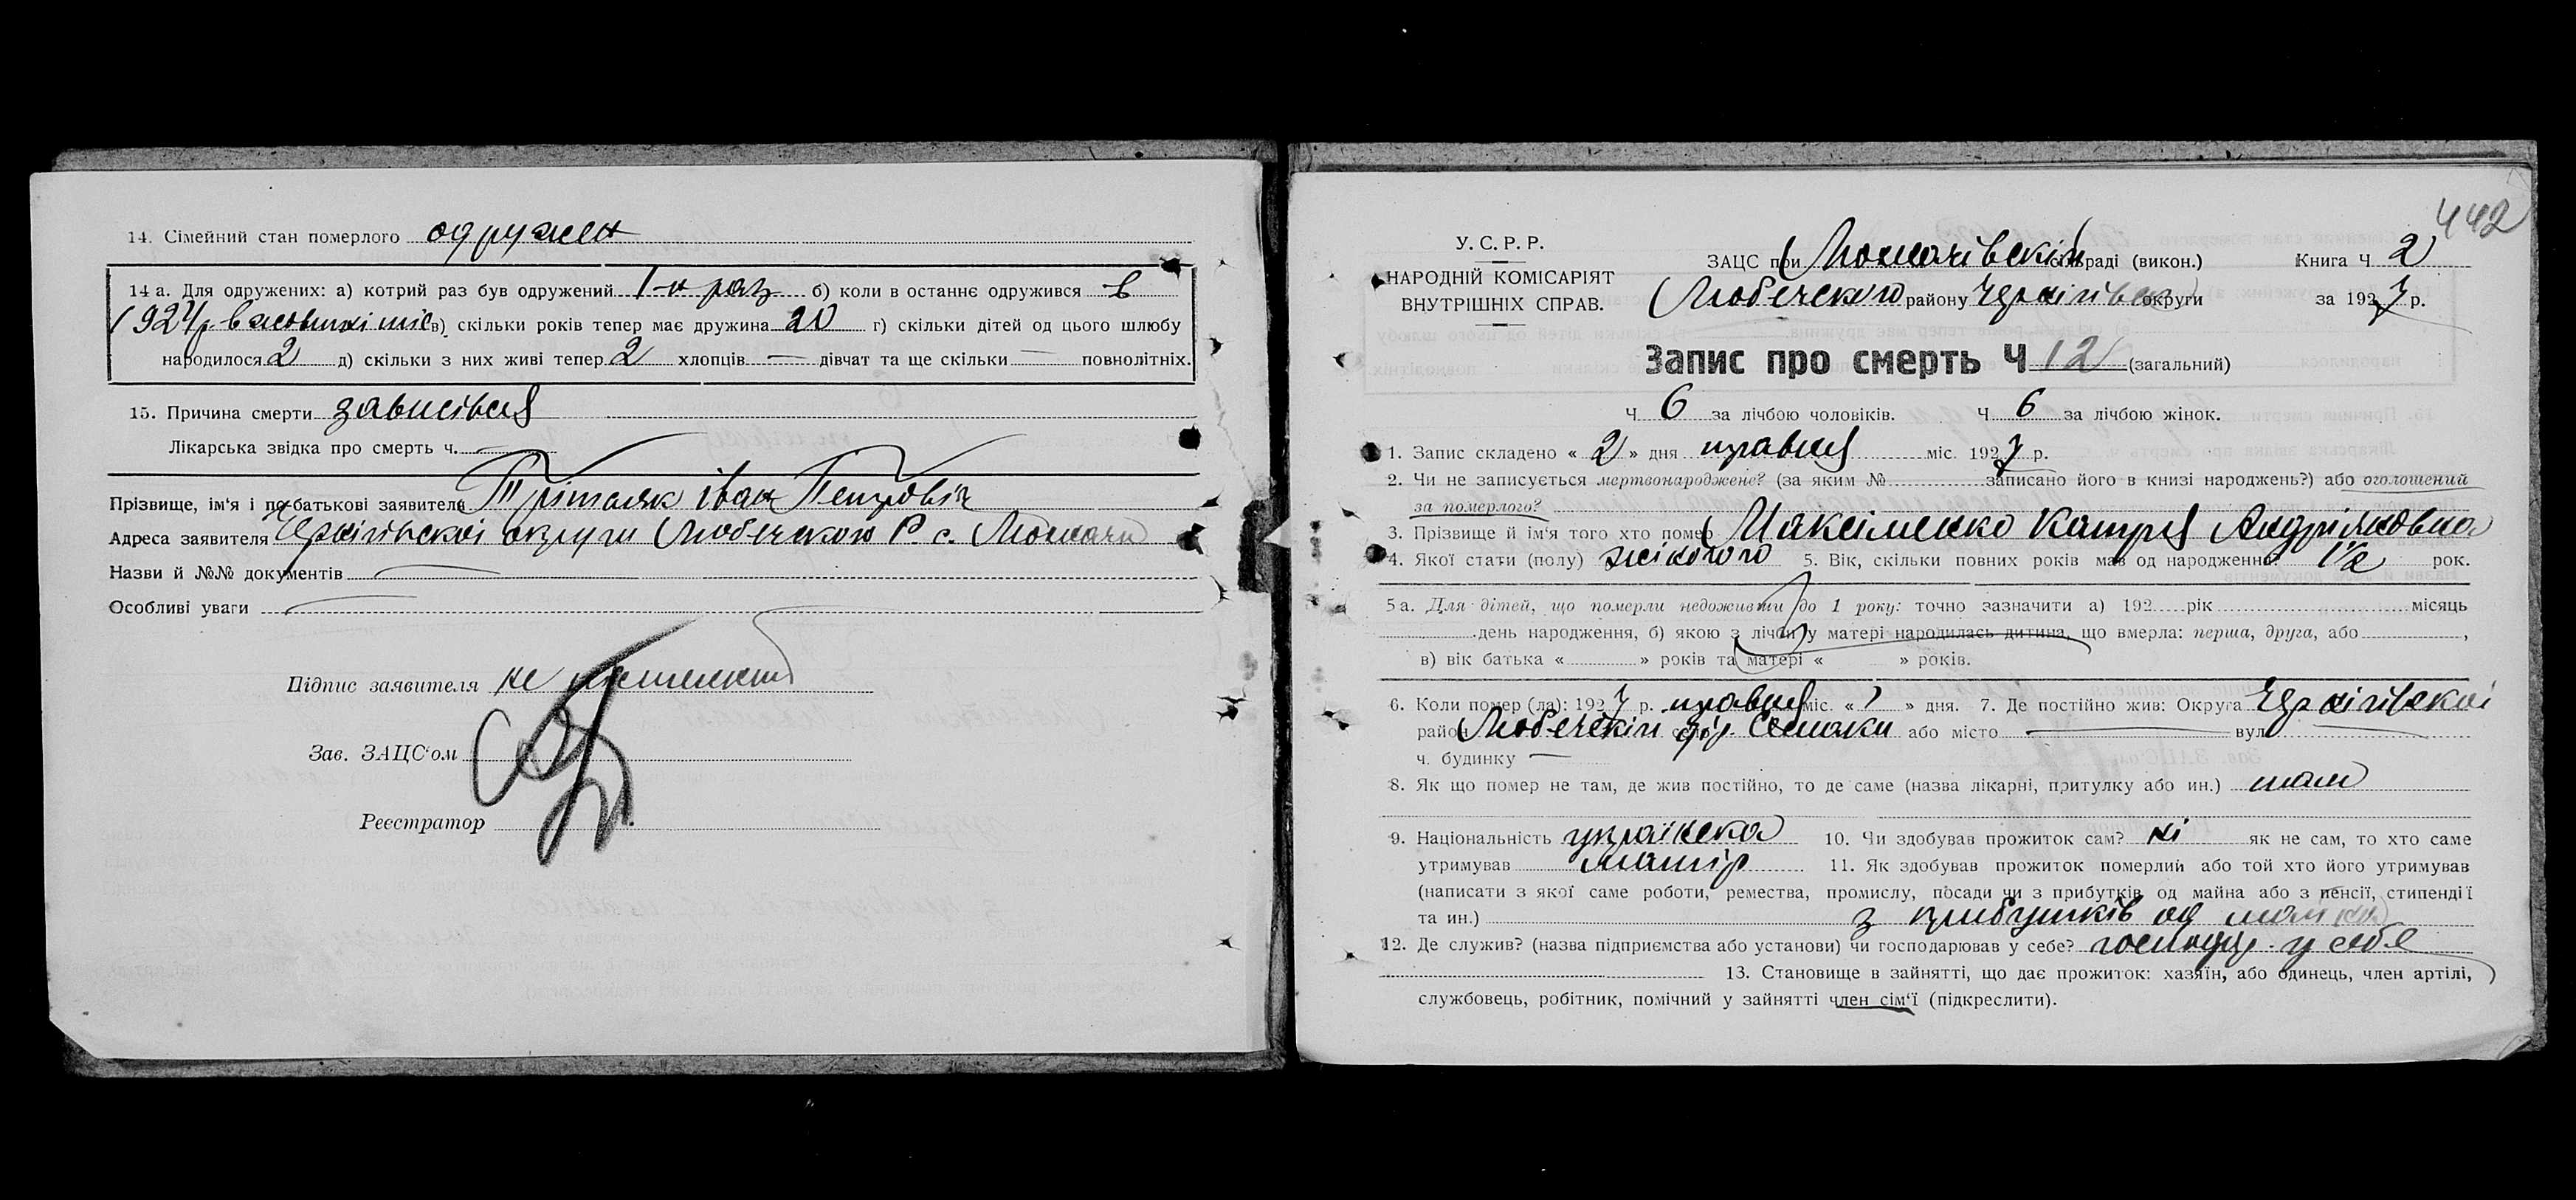 14. Сімейний стан померлого одружен
14 а. Для одружених: а) котрий раз був одружений 1-н раз б) коли в останнє одружився в
1924 р. в жовтні міс в) скільки років тепер має дружина 20 г) скільки дітей од цього шлюбу
народилося 2 д) скільки з них живі тепер 2 хлопців — дівчат та ще скільки — повнолітніх.
15. Причина смерти зависівся
Лікарська звідка про смерть ч. —
Прізвище, ім'я і по-батькові заявителя Іван Петровіч
Адреса заявителя Чернігівскоі округи Любечского Р. с.
Назви й №№ документів —
Особливі уваги —
Підпис заявителя не
Зав. ЗАЦС'ом
Реєстратор
442
У. С. Р. Р.
НАРОДНІЙ КОМІСАРІЯТ
ВНУТРІШНІХ СПРАВ.
ЗАЦС при сільраді (викон.) Книга Ч 2
Любечского району Чернігівск округи за 1927 р.
Запис про смерть Ч 12 (загальний)
Ч 6 за лічбою чоловіків. Ч 6 за лічбою жінок.
1. Запис складено « 2 » дня травня міс. 1927 р.
2. Чи не записується мертвонароджене? (за яким № записано його в книзі народжень?) або оголошений
за померлого?
3. Прізвище й ім'я того хто помер Максіменко Катря Андріяновна
4. Якої стати (полу) жіночого 5. Вік, скільки повних років мав од народження? 1½ рок.
5 а. Для дітей, що померли недоживши до 1 року: точно зазначити а) 192 рік місяць
день народження, б) якою з лічби у матері народилась дитина, що вмерла: перша, друга, або ,
в) вік батька « » років та матері « » років.
6. Коли помер (ла): 1927 р. травня міс. « 1 » дня. 7. Де постійно жив: Округа Чернігівскоі
район Любечскій село або місто — вул
ч. будинку —
8. Як що помер не там, де жив постійно, то де саме (назва лікарні, притулку або ин.) там
9. Національність українска 10. Чи здобував прожиток сам? ні як не сам, то хто саме
утримував матір 11. Як здобував прожиток померлий або той хто його утримував
(написати з якої саме роботи, ремества, промислу, посади чи з прибутків од майна або з пенсії, стипендії
та ин.) з прибутків од майна
12. Де служив? (назва підприємства або установи) чи господарював у себе? господар. у себе
13. Становище в зайнятті, що дає прожиток: хазяїн, або одинець, член артілі,
службовець, робітник, помічний у зайнятті член сім'ї (підкреслити).